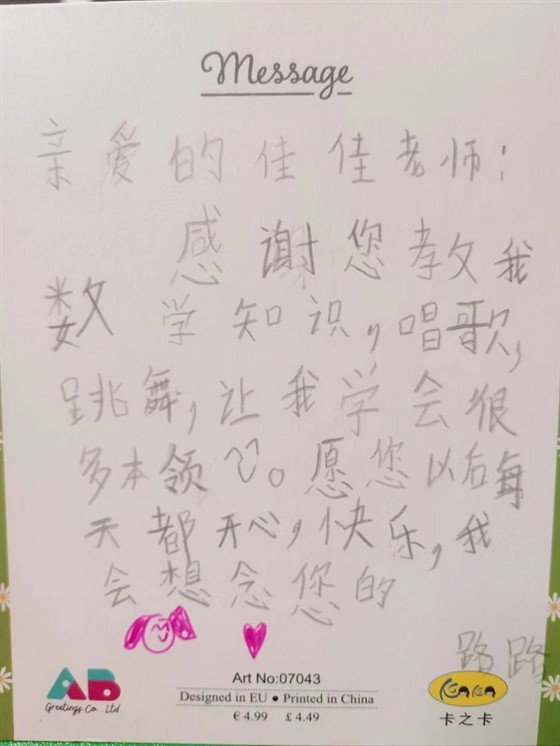 Message
亲爱的佳佳老师：
感谢您教我
数学知识，唱歌，
跳舞，让我学会很
多本领。愿您以后每
天都开心，快乐，我
会想念您的
路路
AB
Greetings Co. Ltd
Art No:07043
Designed in EU ● Printed in China
€ 4.99 £ 4.49
KaKa
卡之卡